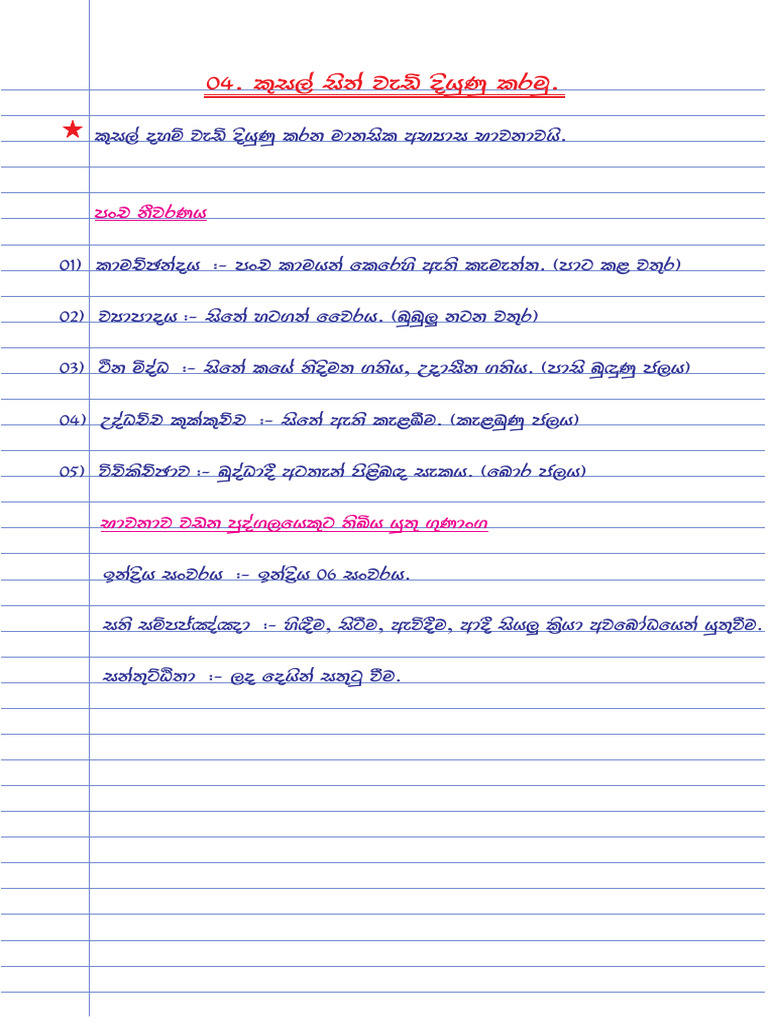 04. කුසල් සිත් වැඩි දියුණු කරමු.
★ කුසල් දහම් වැඩි දියුණු කරන මානසික අභ්‍යාස භාවනාවයි.
පංච නීවරණය
01) කාමච්ඡන්දය :- පංච කාමයන් කෙරෙහි ඇති කැමැත්ත. (පාට කළ වතුර)
02) ව්‍යාපාදය :- සිතේ හටගත් වෛරය. (බුබුලු නටන වතුර)
03) ථීන මිද්ධ :- සිතේ කයේ නිදිමත ගතිය, උදාසීන ගතිය. (පාසි බුඳුණු ජලය)
04) උද්ධච්ච කුක්කුච්ච :- සිතේ ඇති කැළඹීම. (කැළඹුණු ජලය)
05) විචිකිච්ඡාව :- බුද්ධාදී අටතැන් පිළිබඳ සැකය. (බොර ජලය)
භාවනාව වඩන පුද්ගලයෙකුට තිබිය යුතු ගුණාංග
ඉන්ද්‍රිය සංවරය :- ඉන්ද්‍රිය 06 සංවරය.
සති සම්පජ්ඤ්ඤා :- හිඳීම, සිටීම, ඇවිදීම, ආදී සියලු ක්‍රියා අවබෝධයෙන් යුතුවීම.
සන්තුට්ඨිතා :- ලද දෙයින් සතුටු වීම.